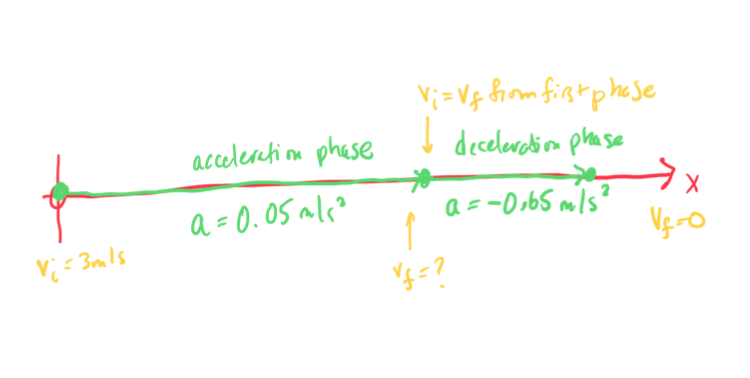 vᵢ = v_f from first phase
acceleration phase
deceleration phase
a = 0.05 m/s²
a = -0.65 m/s²
x
v_f = 0
vᵢ = 3m/s
v_f = ?